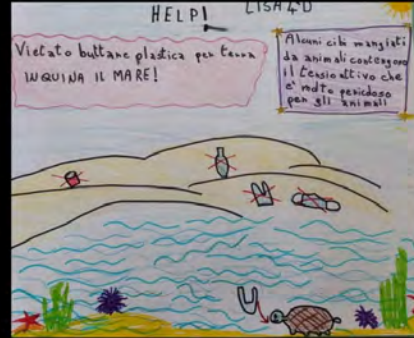 HELP! LISA 4D
Vietato buttare plastica per terra
INQUINA IL MARE!
Alcuni cibi mangiati
da animali contengono
il tensioattivo che
è molto pericoloso
per gli animali